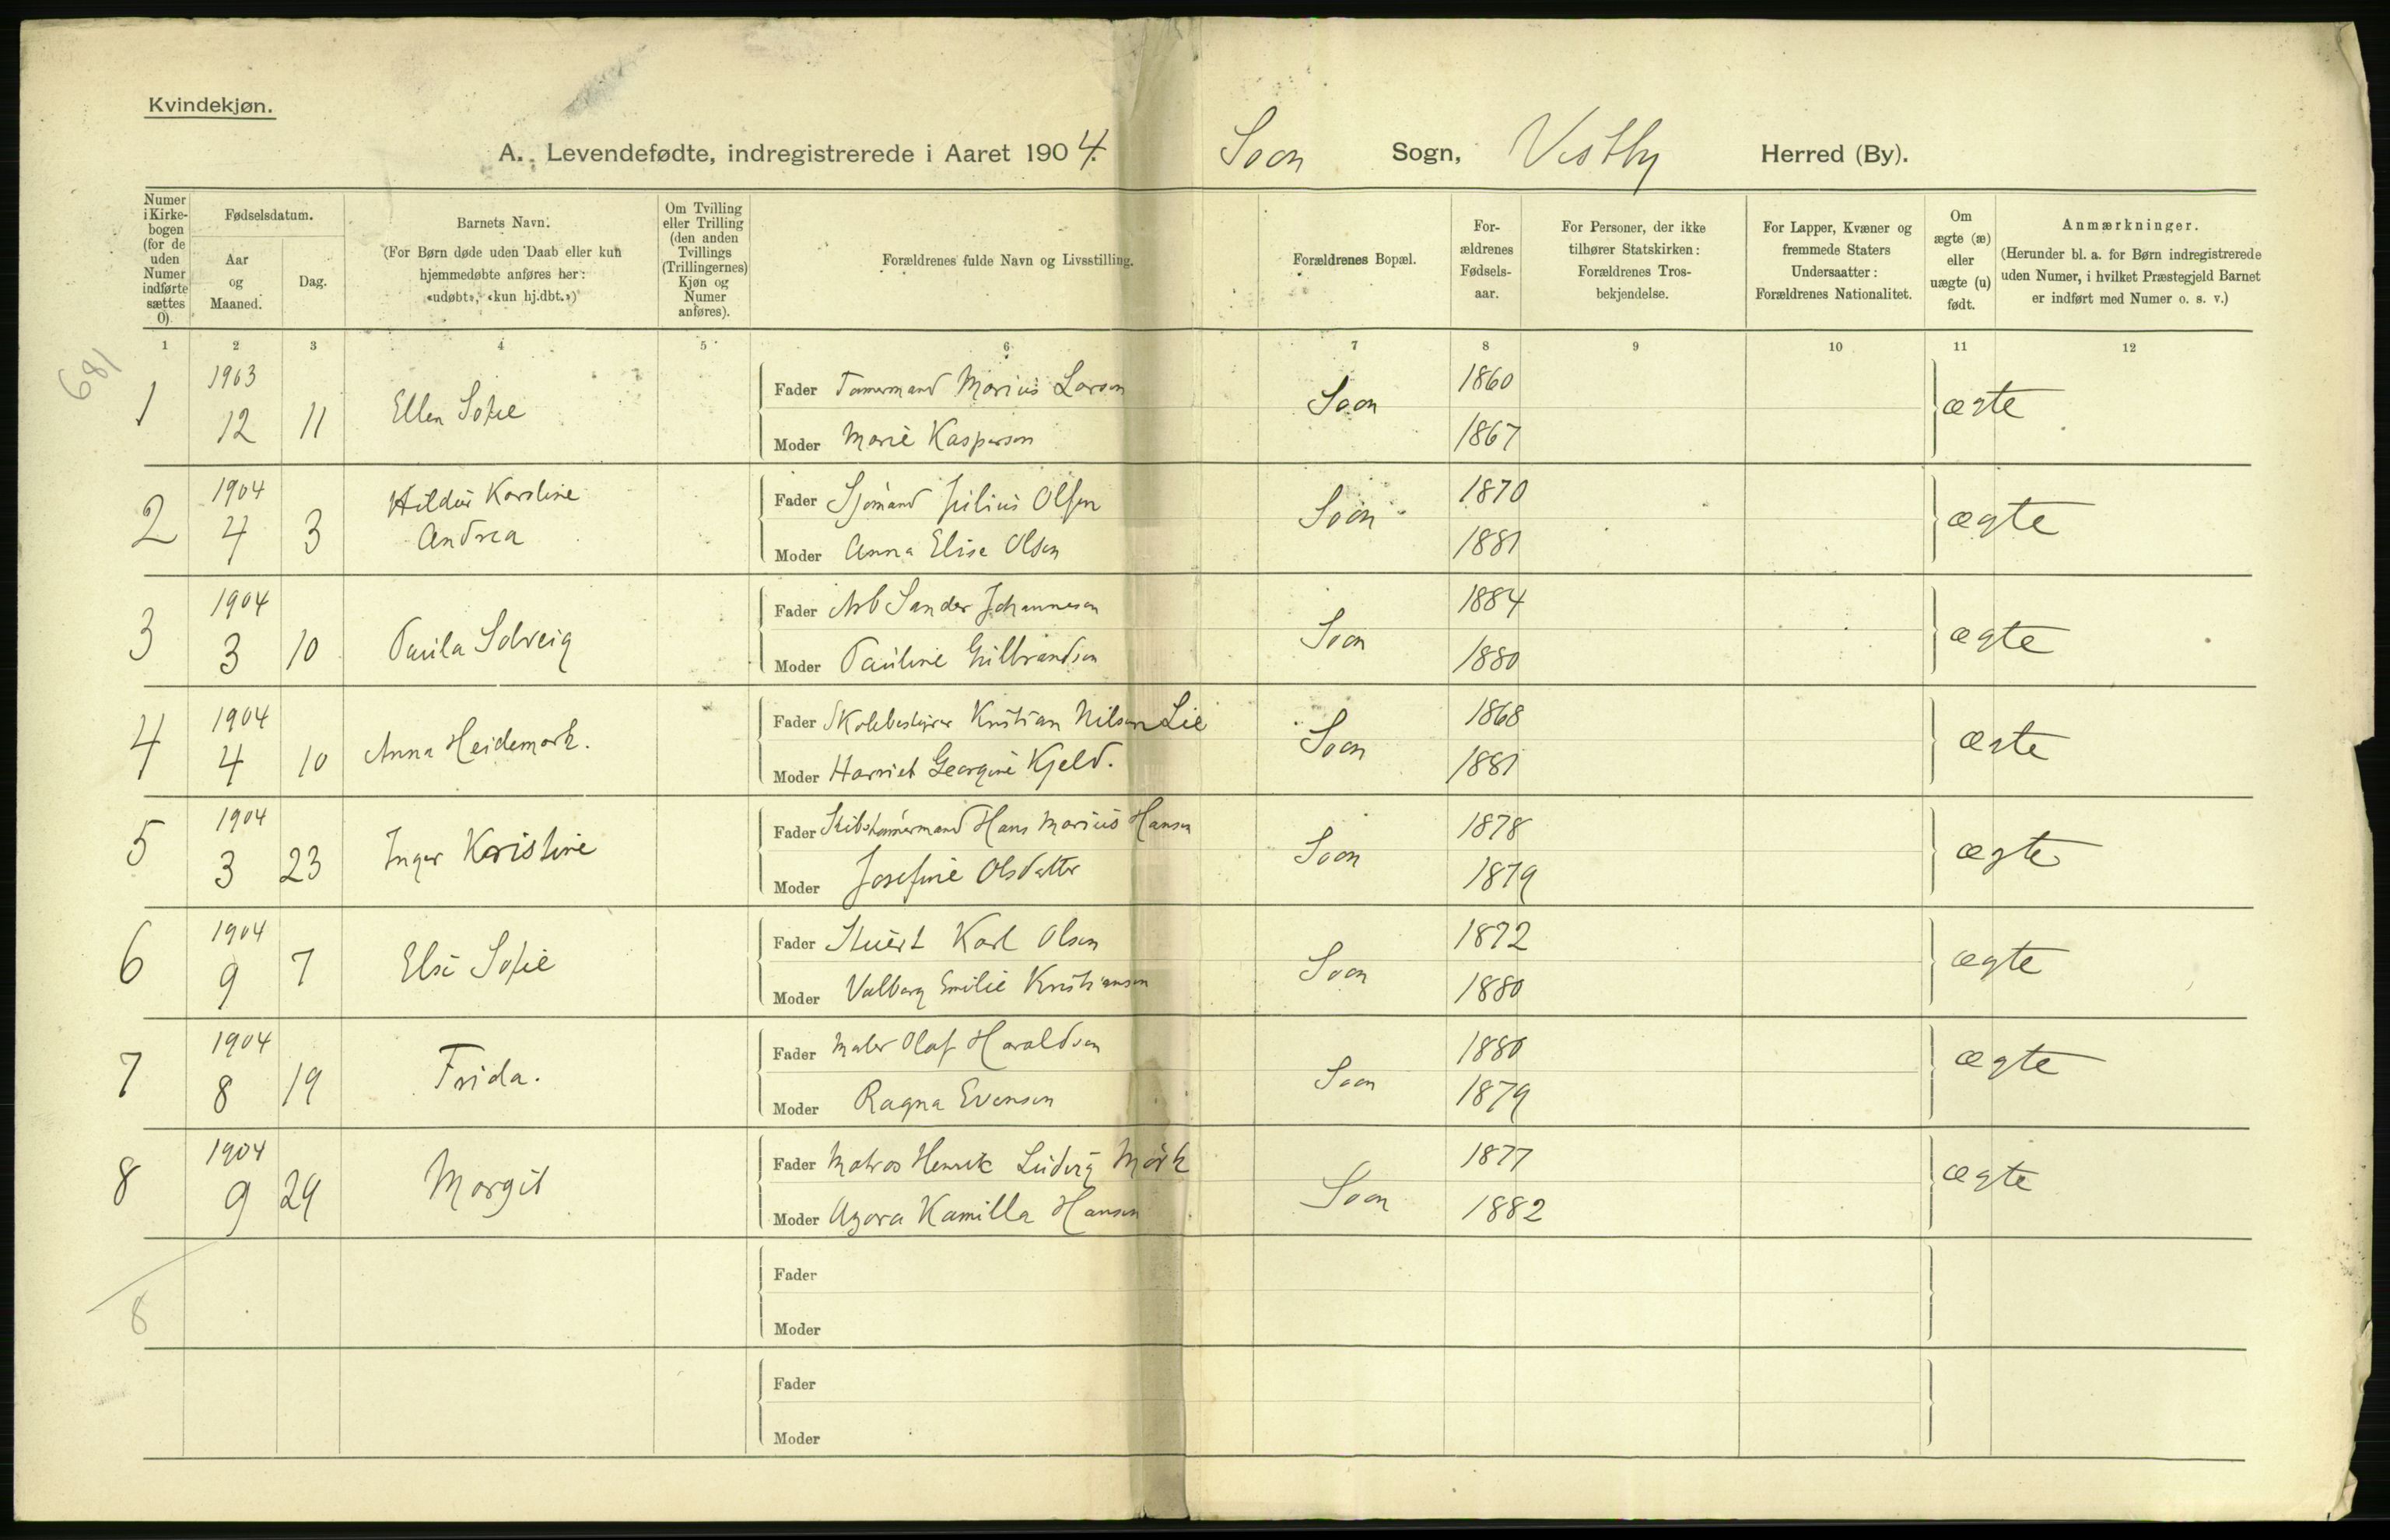 Kvindekjøn.
A. Levendefødte, indregistrerede i Aaret 1904. Soon Sogn, Vestby Herred (By).
Numer i Kirkebogen (for de uden Numer indførte sættes 0).
Fødselsdatum.
Aar og Maaned.
Dag.
Barnets Navn.
(For Børn døde uden Daab eller kun hjemmedøbte anføres her: «udøbt», «kun hj.dbt.»)
Om Tvilling eller Trilling (den anden Tvillings (Trillingernes) Kjøn og Numer anføres).
Forældrenes fulde Navn og Livsstilling.
Forældrenes Bopæl.
Forældrenes Fødselsaar.
For Personer, der ikke tilhører Statskirken: Forældrenes Trosbekjendelse.
For Lapper, Kvæner og fremmede Staters Undersaatter: Forældrenes Nationalitet.
Om ægte (æ) eller uægte (u) født.
Anmærkninger.
(Herunder bl. a. for Børn indregistrerede uden Numer, i hvilket Præstegjeld Barnet er indført med Numer o. s. v.)
1 2 3 4 5 6 7 8 9 10 11 12
681
1 1903 12 11 Ellen Sofie Fader Tømermand Marius Larsen Soon 1860 ægte
Moder Marie Kaspersen 1867
2 1904 4 3 Hildur Karoline Andrea Fader Sjømand Julius Olsen Soon 1870 ægte
Moder Anna Elise Olsen 1881
3 1904 3 10 Paula Solveig Fader Arb Sander Johannesen Soon 1884 ægte
Moder Pauline Gulbrandsen 1880
4 1904 4 10 Anna Heidemark. Fader Skolebestyrer Kristian Nilsen Lie Soon 1868 ægte
Moder Harriet Georgine Kjeld. 1881
5 1904 3 23 Inger Kristine Fader Skibstømermand Hans Marius Hansen Soon 1878 ægte
Moder Josefine Olsdatter 1879
6 1904 9 7 Else Sofie Fader Stuert Karl Olsen Soon 1872 ægte
Moder Valborg Emilie Kristiansen 1880
7 1904 8 19 Frida. Fader Maler Olaf Haraldsen Soon 1880 ægte
Moder Ragna Evensen 1879
8 1904 9 29 Margit Fader Matros Henrik Ludvig Mørk Soon 1877 ægte
Moder Agora Kamilla Hansen 1882
8
Fader
Moder
Fader
Moder